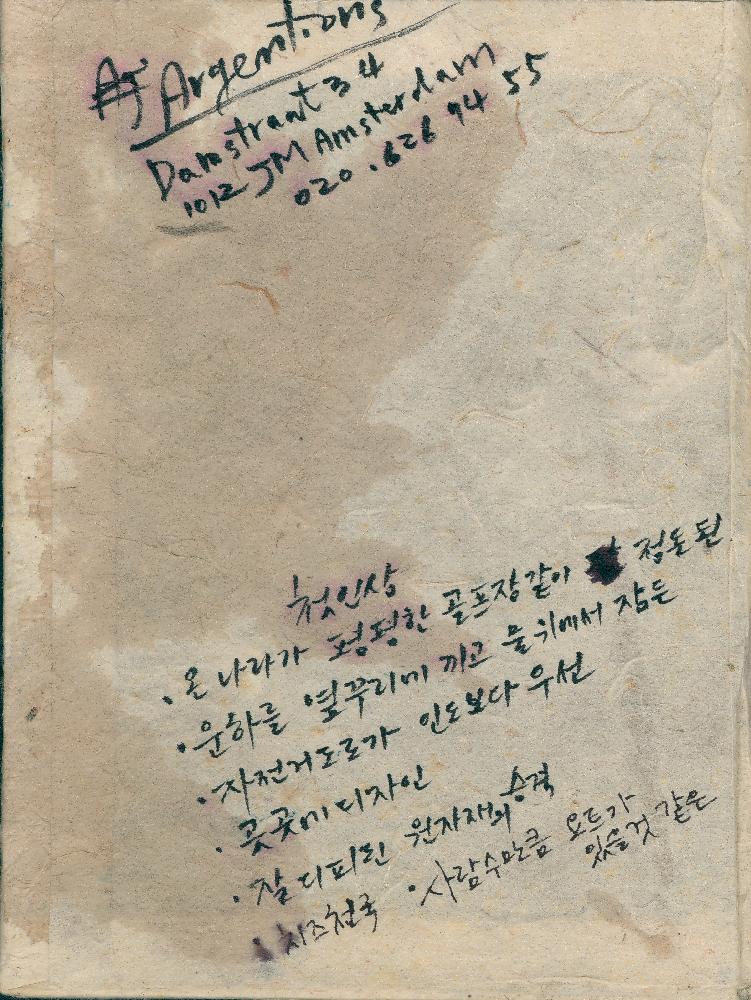 Argentions
Damstraat 34
1012 JM Amsterdam
020.626 94 55
첫인상
· 온 나라가 평평한 골프장같이 정돈된
· 운하를 옆꾸리에 끼고 물위에서 잠든
· 자전거도로가 인도보다 우선
· 곳곳에 디자인
· 잘 디피된 원자재의 승격
· 치즈천국 · 사람수만큼 요트가
있을것 같은